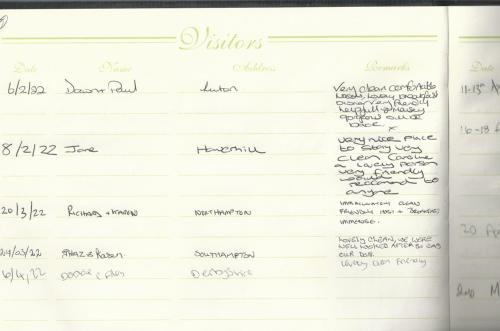 Visitors
Date Name Address Remarks
6/2/22 Dawn + Paul Luton Very clean comfortable
room, lovely breakfast
owner very friendly
helpful
will be
back.
x
8/2/22 Jane Haverhill very nice place
to stay very
clean Caroline
a lovely person
very friendly
would
reccomend to
anyone
20/3/22 Richard + Karen Northampton Immaculately clean
friendly host + breakfast
immense.
24/03/22 Southampton Lovely clean, we were
well looked after so was
our dog.
6/4/22 Derbyshire Lovely clean friendly
Date
11-13th
16-18
20
2nd M